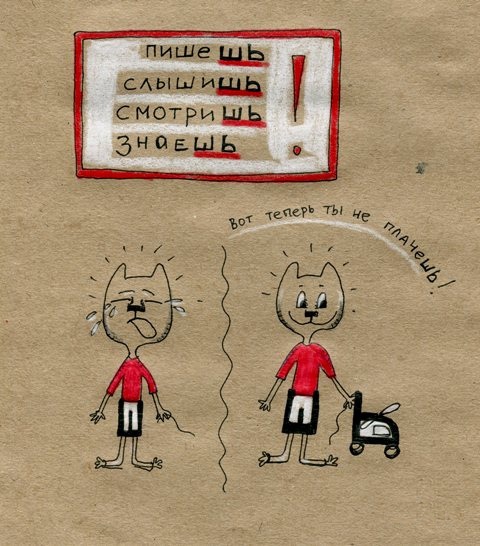 пишешь
слышишь
смотришь
знаешь
!
Вот теперь ты не плачешь!